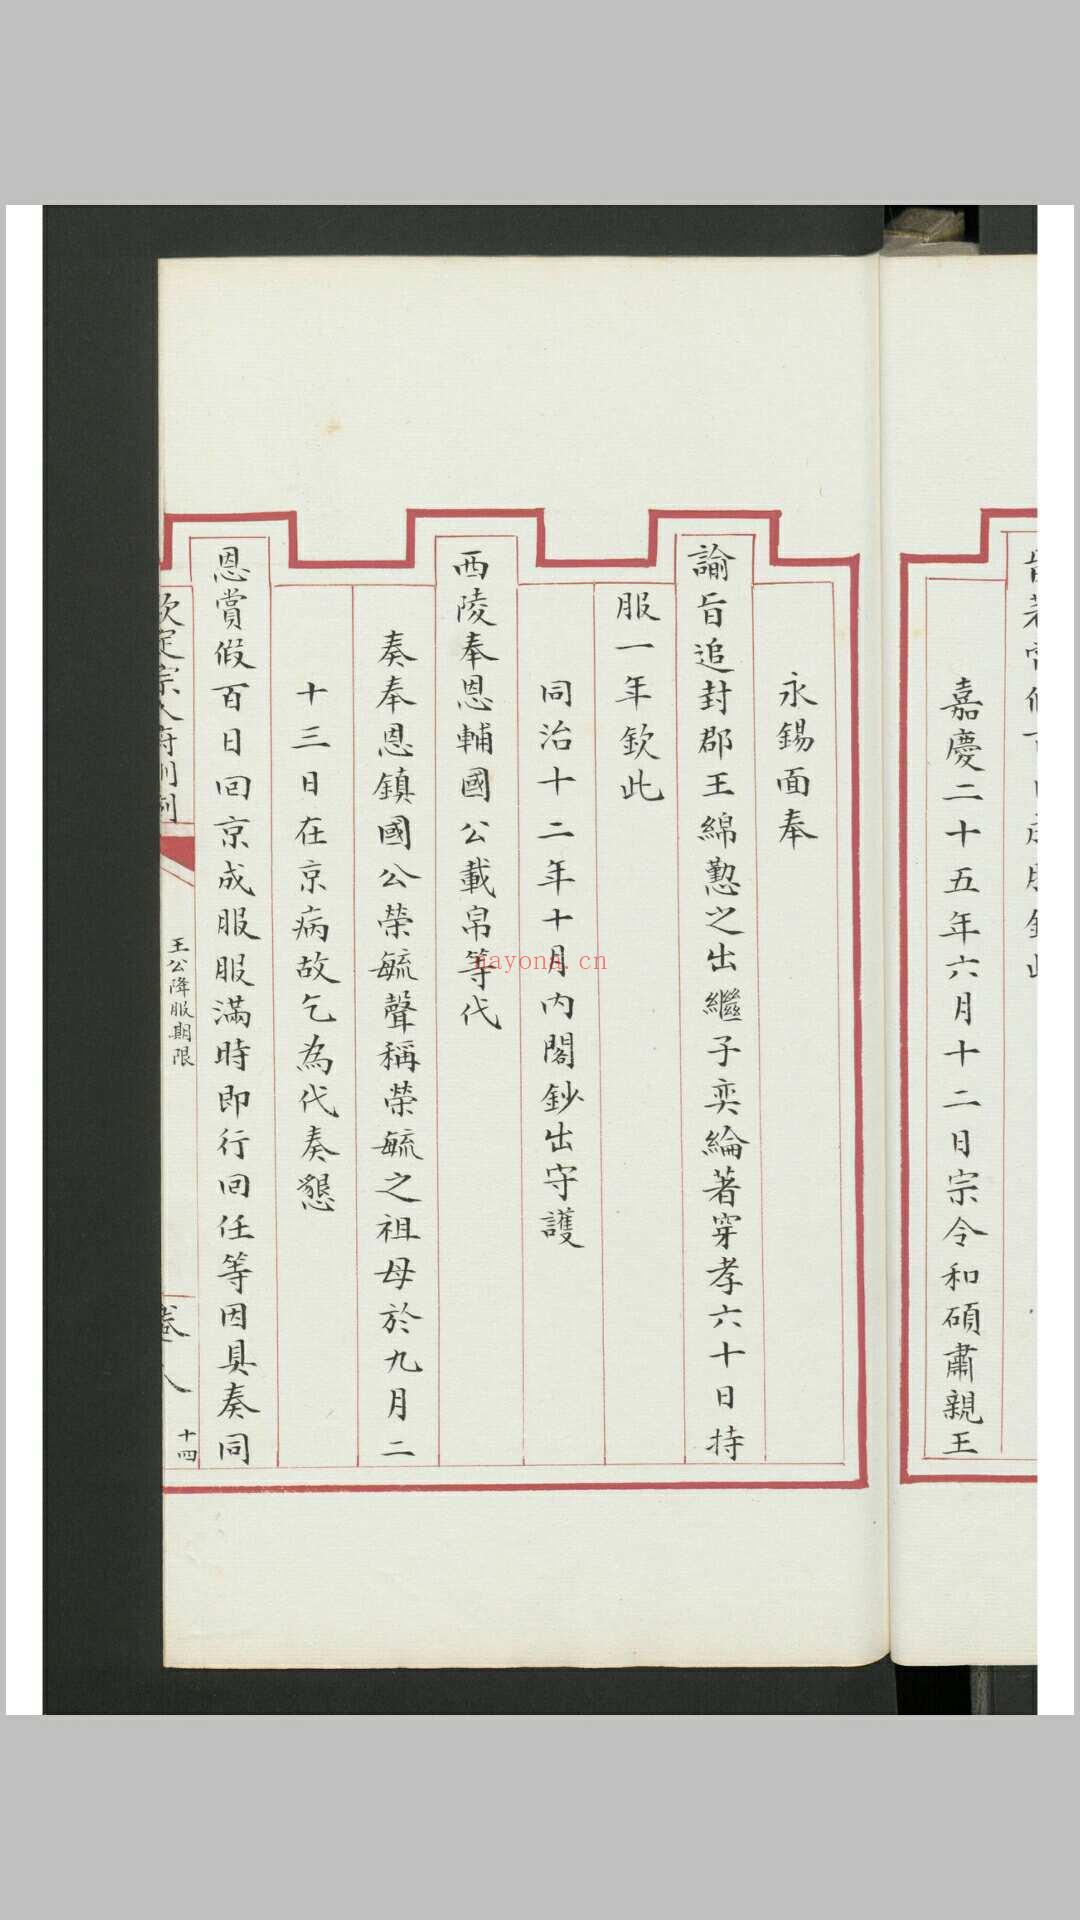 嘉慶二十五年六月十二日宗令和碩肅親王
永錫面奉
諭旨追封郡王綿懃之出繼子奕綸著穿孝六十日持
服一年欽此
同治十二年十月內閣鈔出守護
西陵奉恩輔國公載帛等代
奏奉恩鎮國公榮毓聲稱榮毓之祖母於九月二
十三日在京病故乞為代奏懇
恩賞假百日回京成服服滿時即行回任等因具奏同
欽定宗人府則例
王公降服期限
卷八
十四
nayona.cn